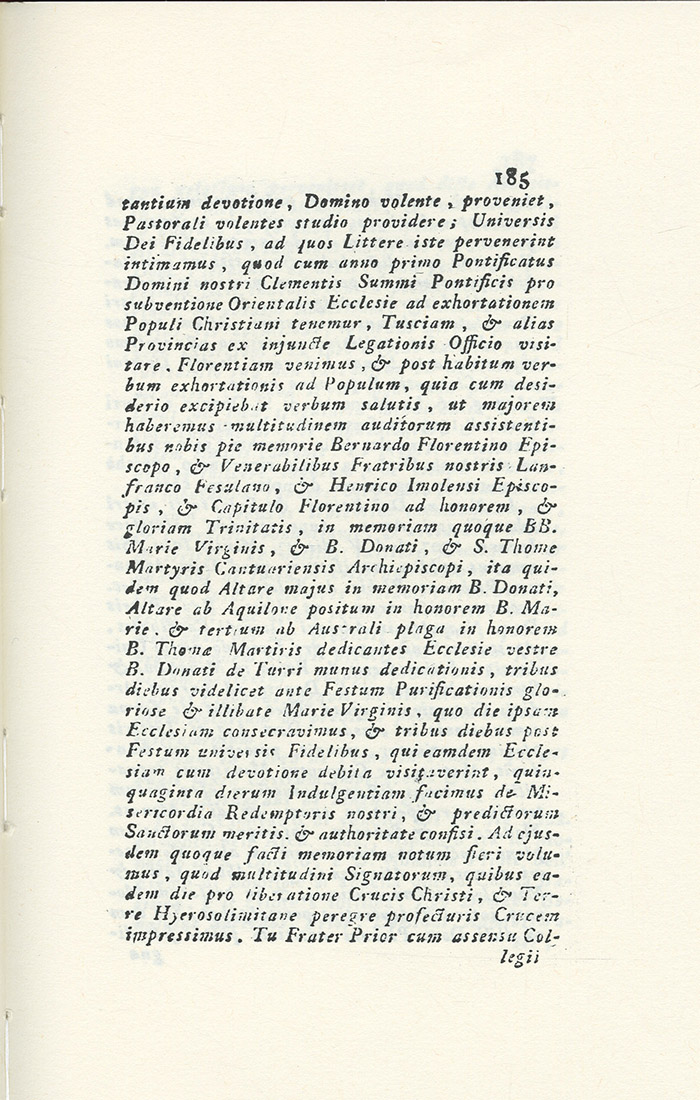 185
tantium devotione, Domino volente, proveniet,
Pastorali volentes studio providere; Universis
Dei Fidelibus, ad quos Littere iste pervenerint
intimamus, quod cum anno primo Pontificatus
Domini nostri Clementis Summi Pontificis pro
subventione Orientalis Ecclesie ad exhortationem
Populi Christiani tenemur, Tusciam, & alias
Provincias ex injuncte Legationis Officio visi-
tare, Florentiam venimus, & post habitum ver-
bum exhortationis ad Populum, quia cum desi-
derio excipiebat verbum salutis, ut majorem
haberemus multitudinem auditorum assistenti-
bus nobis pie memorie Bernardo Florentino Epi-
scopo, & Venerabilibus Fratribus nostris Lan-
franco Fesulano, & Henrico Imolensi Episco-
pis, & Capitulo Florentino ad honorem, &
gloriam Trinitatis, in memoriam quoque BB.
Marie Virginis, & B. Donati, & S. Thome
Martyris Cantuariensis Archiepiscopi, ita qui-
dem quod Altare majus in memoriam B. Donati,
Altare ab Aquilone positum in honorem B. Ma-
rie. & tertium ab Australi plaga in honorem
B. Thomæ Martiris dedicantes Ecclesie vestre
B. Donati de Turri munus dedicationis, tribus
diebus videlicet ante Festum Purificationis glo-
riose & illibate Marie Virginis, quo die ipsam
Ecclesiam consecravimus, & tribus diebus post
Festum universis Fidelibus, qui eamdem Eccle-
siam cum devotione debita visitaverint, quin-
quaginta dierum Indulgentiam facimus de Mi-
sericordia Redemptoris nostri, & predictorum
Sanctorum meritis. & authoritate confisi. Ad ejus-
dem quoque facti memoriam notum fieri volu-
mus, quod multitudini Signatorum, quibus ea-
dem die pro liberatione Crucis Christi, & Ter-
re Hyerosolimitane peregre profecturis Crucem
impressimus. Tu Frater Prior cum assensu Col-
legii